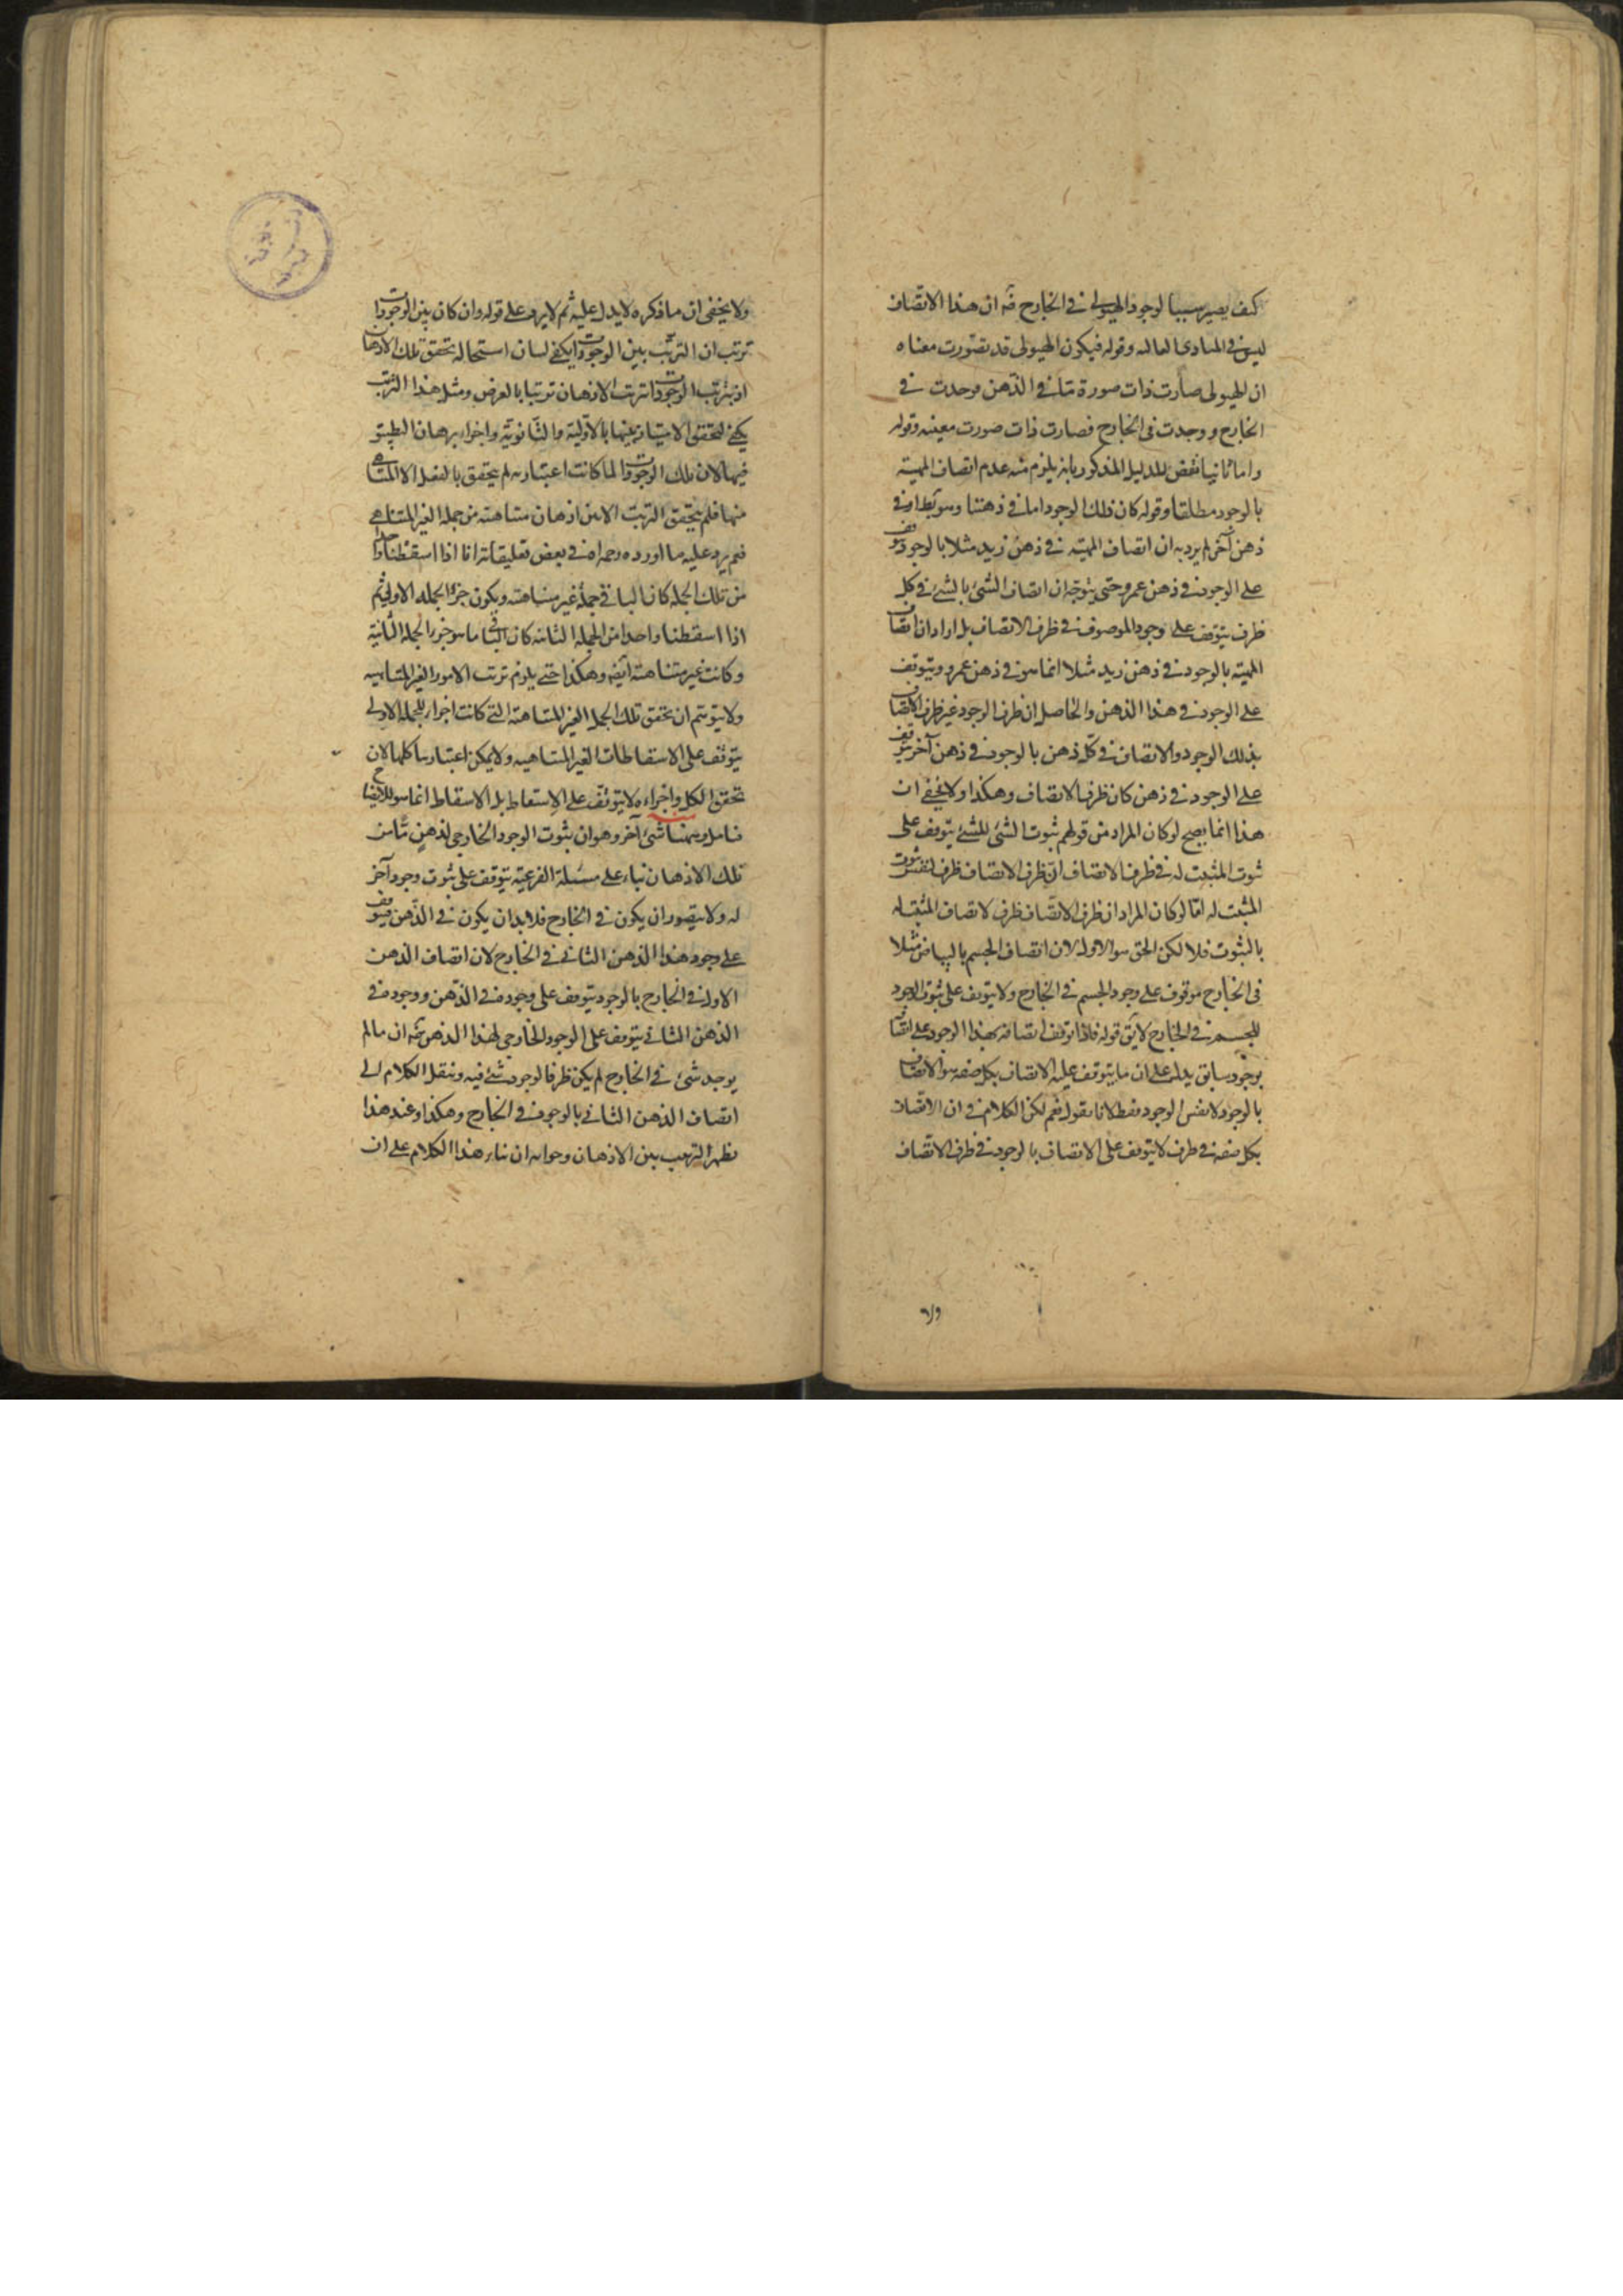 كيف يصير سببا لوجود الهيولى في الخارج فه ان هذا الاتصاف
ليس في المبادى العاليه وقوله فيكون الهيولى قد تصورت معناه
ان الهيولى صارت ذات صورة ما في الذهن وحدث في
الخارج ووجدت فى الخارج فصارت ذات صورت معينه وقوله
واما ثانيا نقض للدليل المذكور بانه يلزم منه عدم اتصاف المهية
بالوجود مطلقا وقوله كان ذلك الوجود اما في ذهننا وهو بط او في
ذهن آخر لم يرد به ان اتصاف المهية في ذهن زيد مثلا بالوجود يتوقف
على الوجود في ذهن عمرو حتى يتوجه ان اتصاف الشئ بالشئ في كل
ظرف يتوقف على وجود الموصوف في ظرف الاتصاف بل اراد ان اتصاف
المهية بالوجود في ذهن زيد مثلا انما هو في ذهن عمرو ويتوقف
على الوجود في هذا الذهن والحاصل ان ظرف الوجود غير ظرف الاتصاف
بذلك الوجود والاتصاف في كل ذهن بالوجود في ذهن آخر يتوقف
على الوجود في ذهن كان ظرف الاتصاف وهكذا ولا يخفى ان
هذا انما يصح لو كان المراد من قولهم ثبوت الشئ للشئ يتوقف على
ثبوت المثبت له في ظرف الاتصاف ان ظرف الاتصاف ظرف لنفس ثبوت
المثبت له اما لو كان المراد ان ظرف الاتصاف ظرف لاتصاف المثبت له
بالثبوت فلا لكن الحق هو الاول لان اتصاف الجسم بالبياض مثلا
فى الخارج موقوف على وجود الجسم في الخارج ولا يتوقف على ثبوت الوجود
للجسم في الخارج لا يق قوله فاذا توقف اتصافه بهذا الوجود على اتصافه
بوجود سابق يدل على ان ما يتوقف عليه الاتصاف بكل صفه هو الاتصاف
بالوجود لا نفس الوجود فقط لانا نقول نعم لكن الكلام في ان الاتصاف
بكل صفه في ظرف لا يتوقف على الاتصاف بالوجود في ظرف الاتصاف
ولا يخفى ان ما ذكره لا يدل عليه ثم لا يرد على قوله وان كان بين الوجودات
ترتب ان الترتب بين الوجودات يكفي لبيان استحاله تحقق تلك الاذهان
اذ بترتب الوجودات ترتب الاذهان ترتبا بالعرض ومثل هذا الترتب
يكفي لتحقق الامتياز بينها بالاولية والثانوية واجراء برهان التطبيق
فيها لان تلك الوجودات لما كانت اعتباريه لم يتحقق بالفعل الا المتناهى
منها فلم يتحقق الترتب الا بين اذهان متناهية من جمله الغير المتناهى
نعم يرد عليه ما اورده رحمه الله في بعض تعليقاته انا اذا اسقطنا واحدا
من تلك الجمله كان الباقي جملة غير متناهية ويكون جزء الجمله الاولى ثم
اذا اسقطنا واحدا من الجملة الثانيه كان الباقى ما هو جزء الجملة الثانية
وكانت غير متناهية ايضه وهكذا حتى يلزم ترتب الامور الغير المتناهيه
ولا يتوهم ان تحقق تلك الجمل الغير المتناهية التي كانت اجزاء للجمله الاولى
يتوقف على الاسقاطات الغير المتناهيه ولا يمكن اعتبارها كلها لان
تحقق الكل واجزاءه لا يتوقف على الاسقاط بل الاسقاط انما هو للايضاح
فتامل وههنا شئ آخر وهو ان ثبوت الوجود الخارجى لذهن ما من
تلك الاذهان بناء على مسئلة الفرعية يتوقف على ثبوت وجود آخر
له ولا يتصور ان يكون في الخارج فلا بد ان يكون في الذهن فيتوقف
على وجود هذا الذهن الثانى في الخارج لان اتصاف الذهن
الاول في الخارج بالوجود يتوقف على وجوده في الذهن ووجوده في
الذهن الثاني يتوقف على الوجود الخارجى لهذا الذهن فه ان ما لم
يوجد شئ في الخارج لم يكن ظرفا لوجود شئ فيه وننقل الكلام الى
اتصاف الذهن الثاني بالوجود في الخارج وهكذا وعند هذا
يظهر الترتب بين الاذهان وجوابه ان بناء هذا الكلام على ان